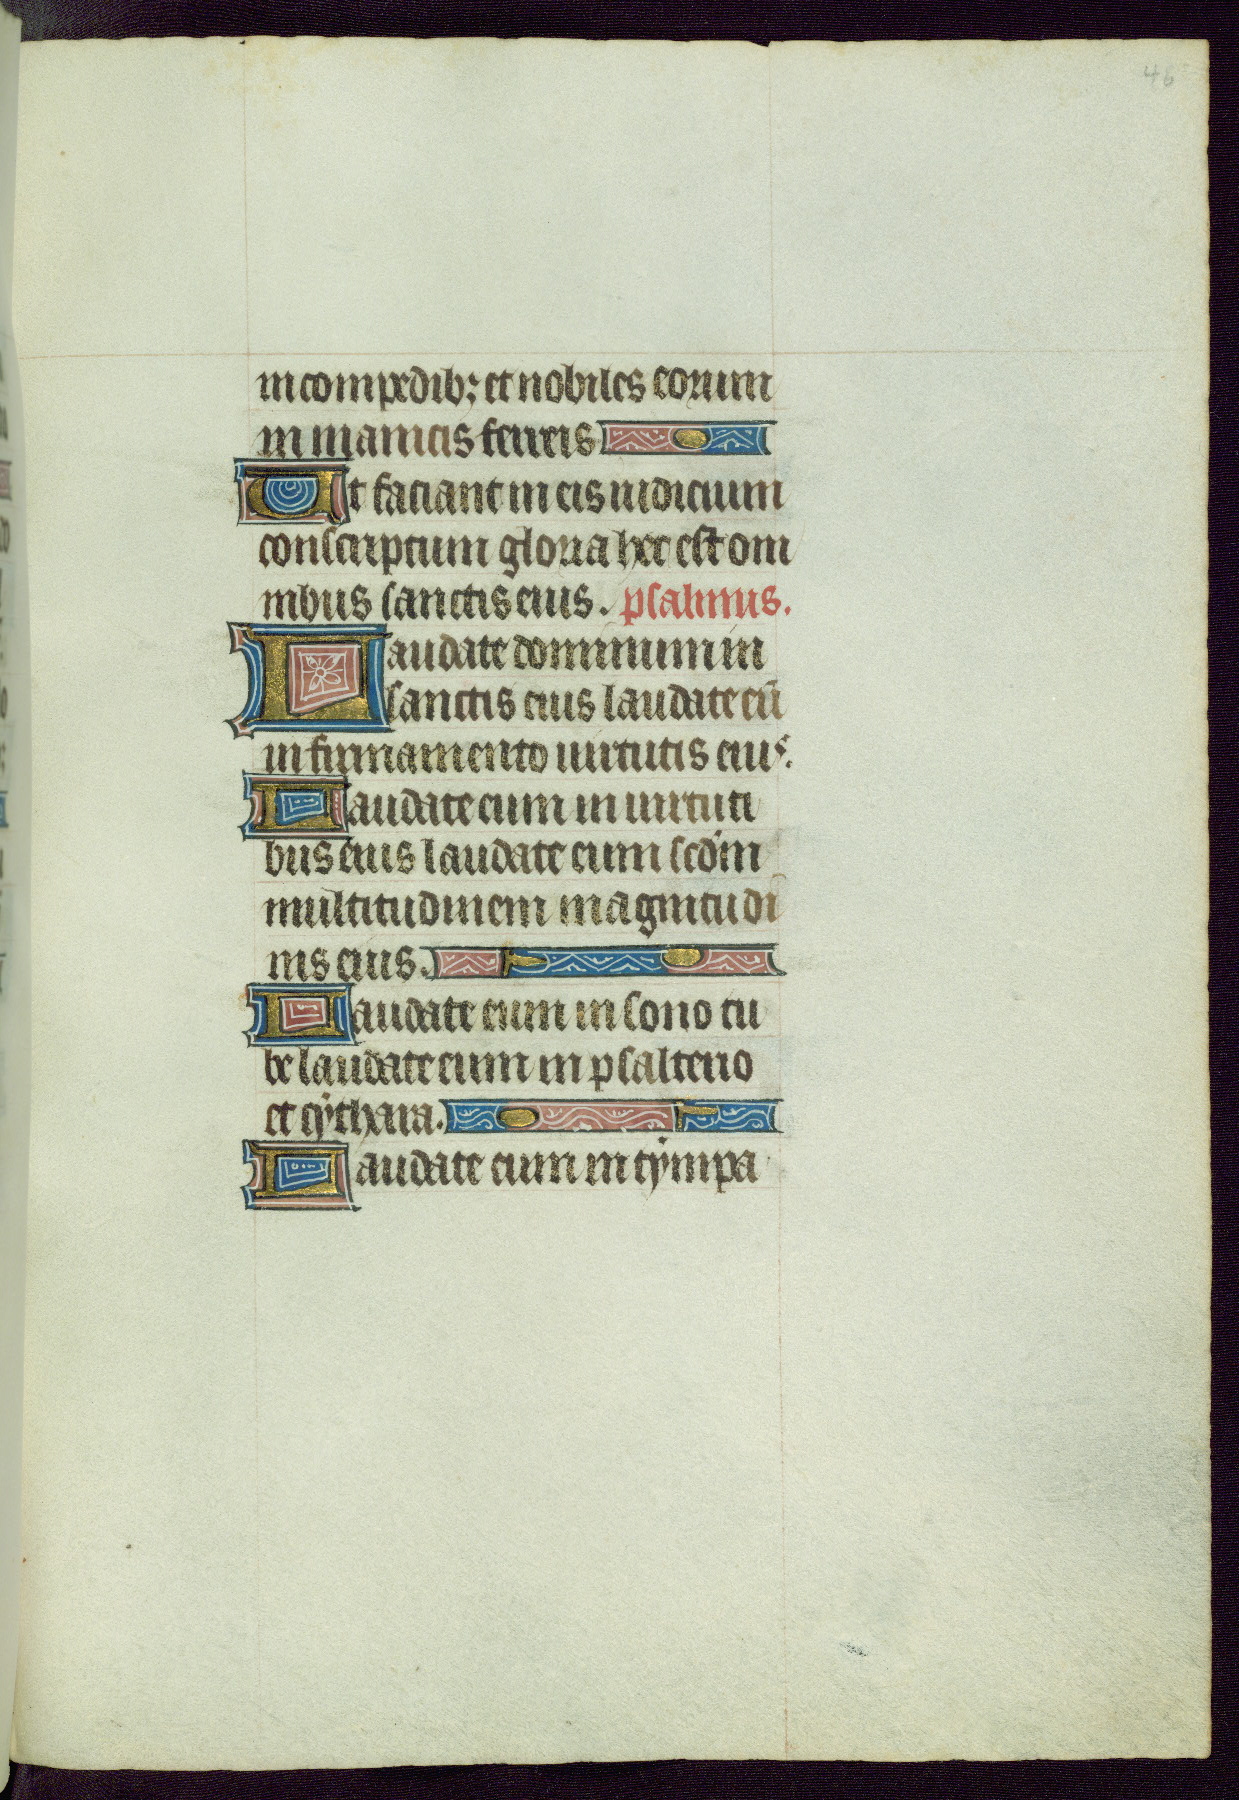 46
in compedib; et nobiles eorum
in manicis ferreis
Ut faciant in eis iudicium
conscriptum gloria hec est om
nibus sanctis eius. psalmus.
Laudate dominum in
sanctis eius laudate eū
in firmamento uirtutis eius.
Laudate eum in uirtuti
bus eius laudate eum scd̄m
multitudinem magnitudi
nis eius.
Laudate eum in sono tu
be laudate eum in psalterio
et cẏthara.
Laudate eum in tẏmpa